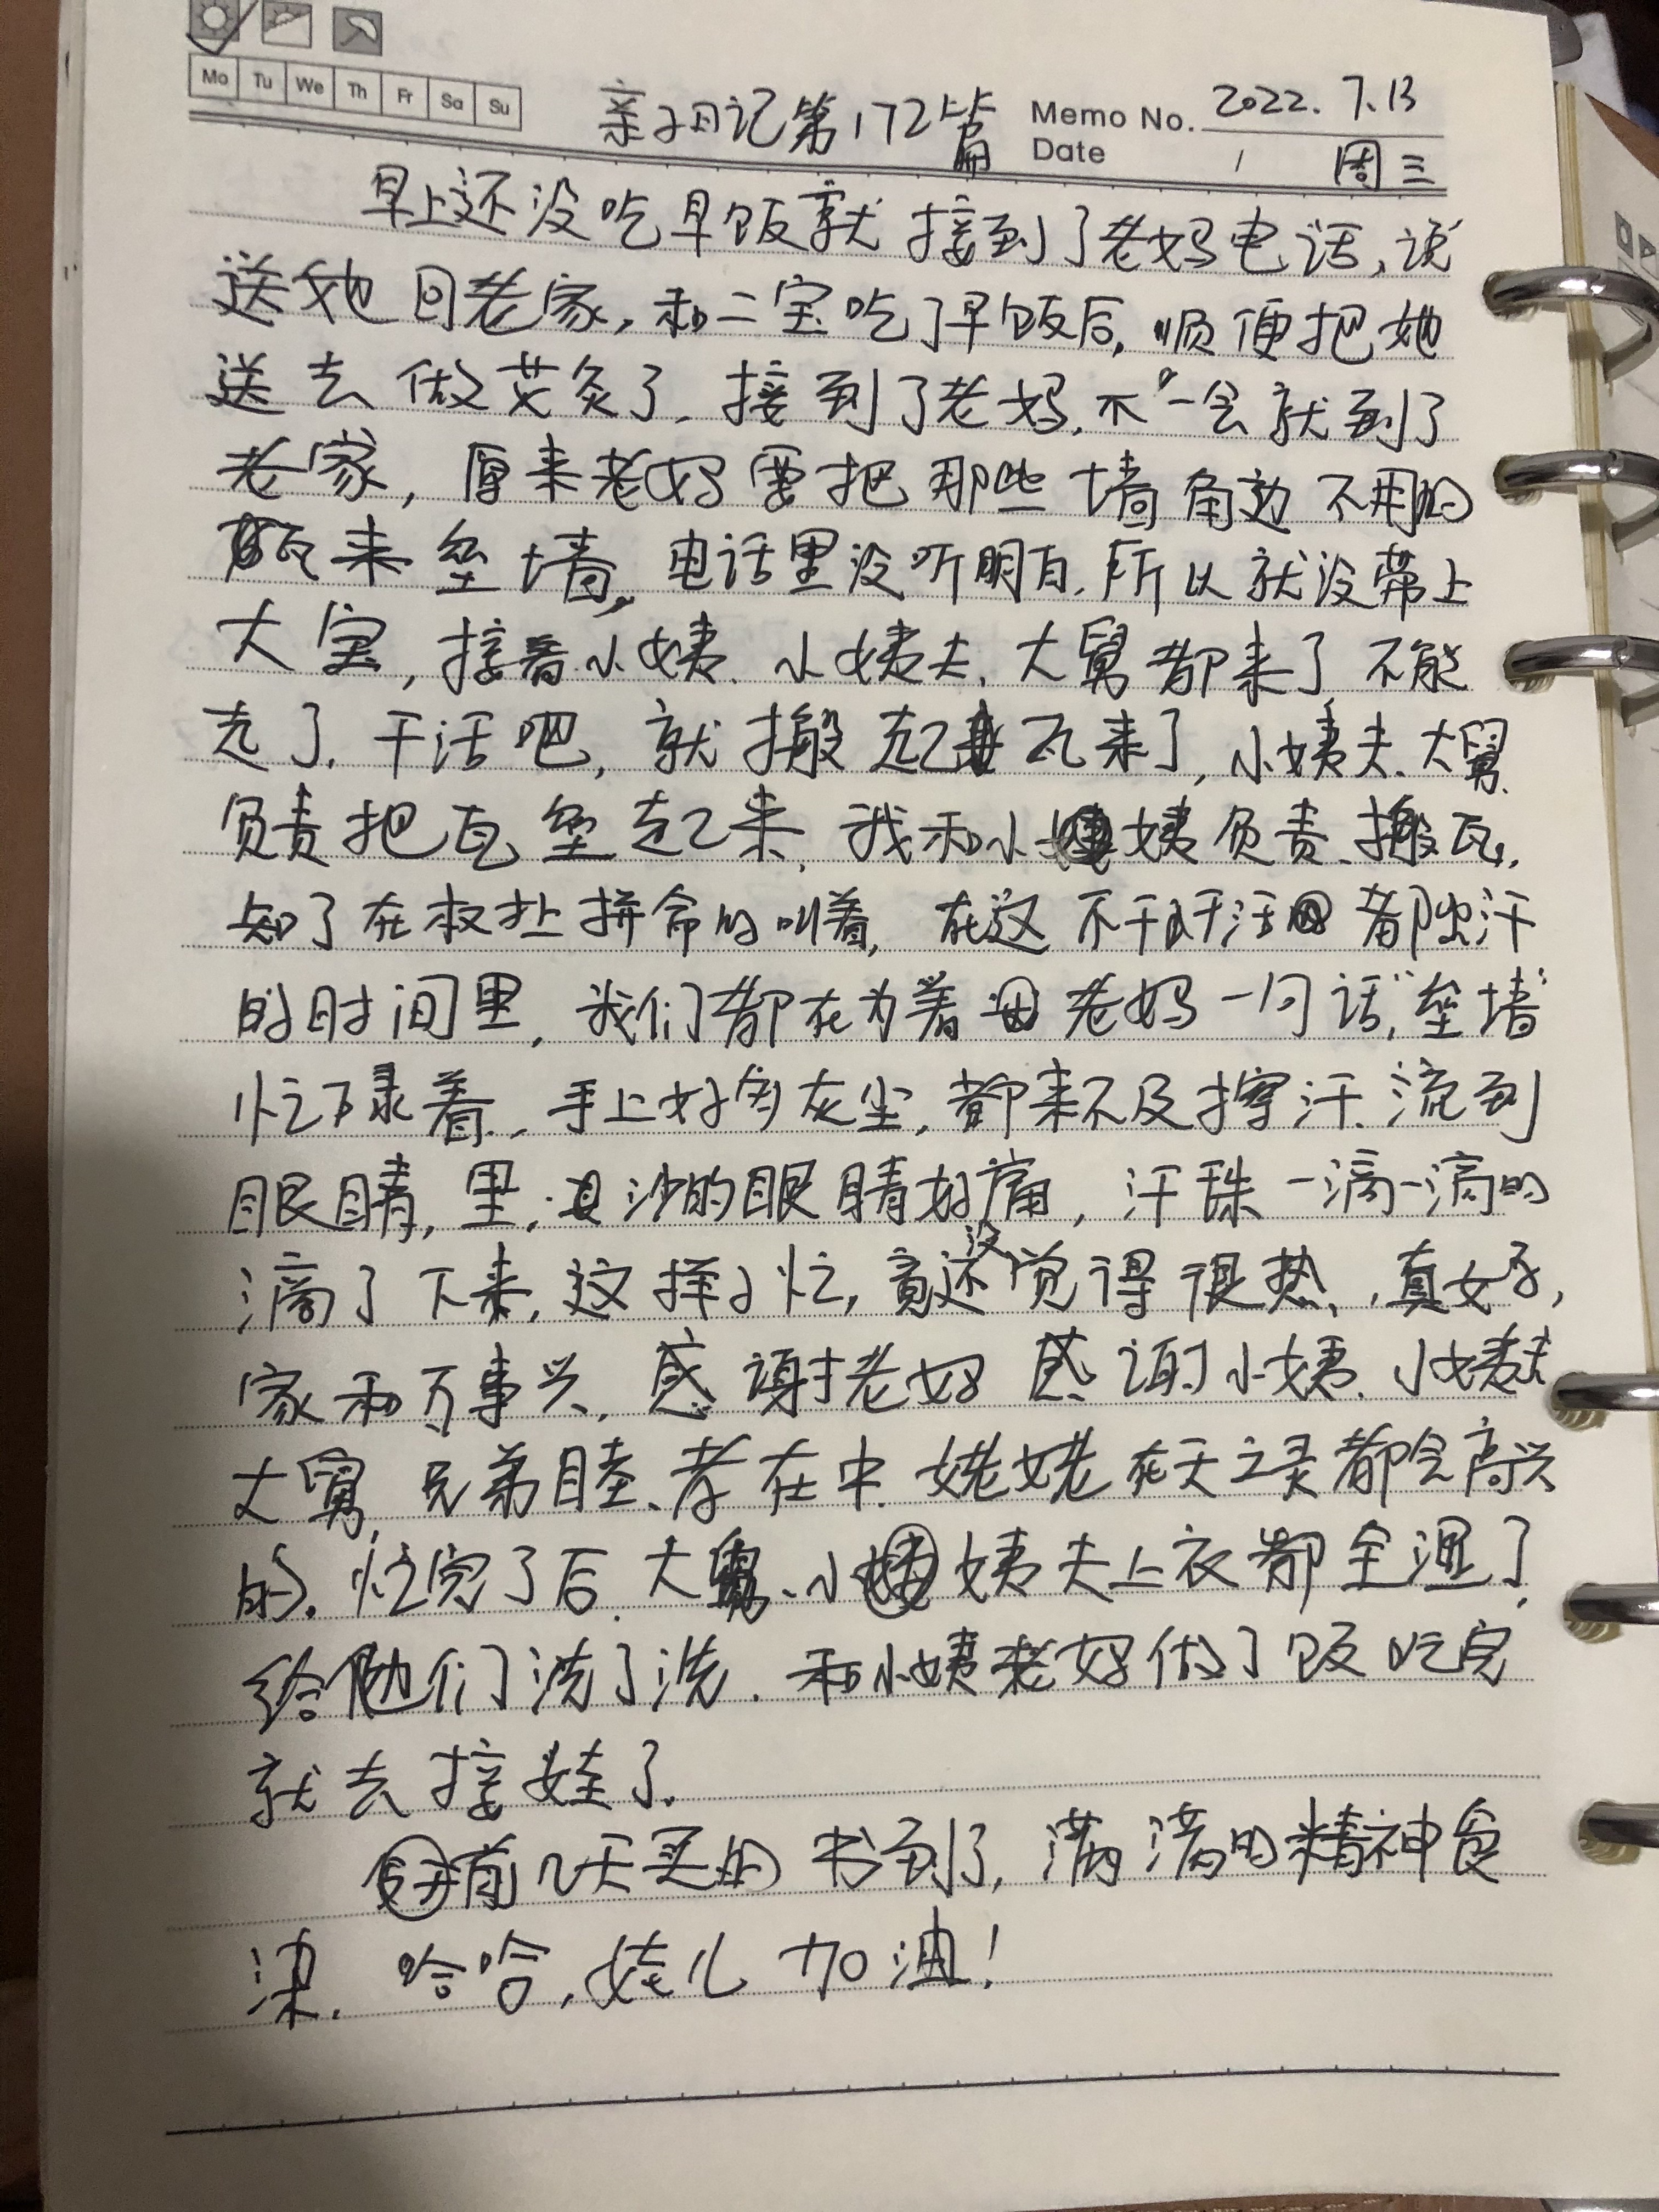 Mo Tu We Th Fr Sa Su
亲子日记第172篇
Memo No. 2022.7.13
Date 周三
早上还没吃早饭就接到了老妈电话,说
送她回老家,和二宝吃了早饭后,顺便把她
送去做艾灸了.接到了老妈,不一会就到了
老家,原来老妈要把那些墙角边不用的
瓦来垒墙,电话里没听明白.所以就没带上
大宝,接着小姨.小姨夫.大舅都来了不能
走了.干活吧,就搬起瓦来了,小姨夫.大舅
负责把瓦垒起来,我和小姨负责搬瓦.
知了在树上拼命的叫着,在这不干活都出汗
的时间里,我们都在为着老妈一句话,垒墙
忙碌着.手上好多灰尘,都来不及擦汗.流到
眼睛,里,沙的眼睛好痛,汗珠一滴一滴的
滴了下来,这样子忙,竟还没觉得很热,真好,
家和万事兴.感谢老妈 感谢小姨.小姨夫
大舅,兄弟睦、孝在中.姥姥在天之灵都会高兴
的.忙完了后.大舅、小姨夫上衣都全湿了,
给他们洗了洗.和小姨老妈做了饭吃完
就去接娃了.
前几天买的书到了,满满的精神食
粮.哈哈,娃儿加油!